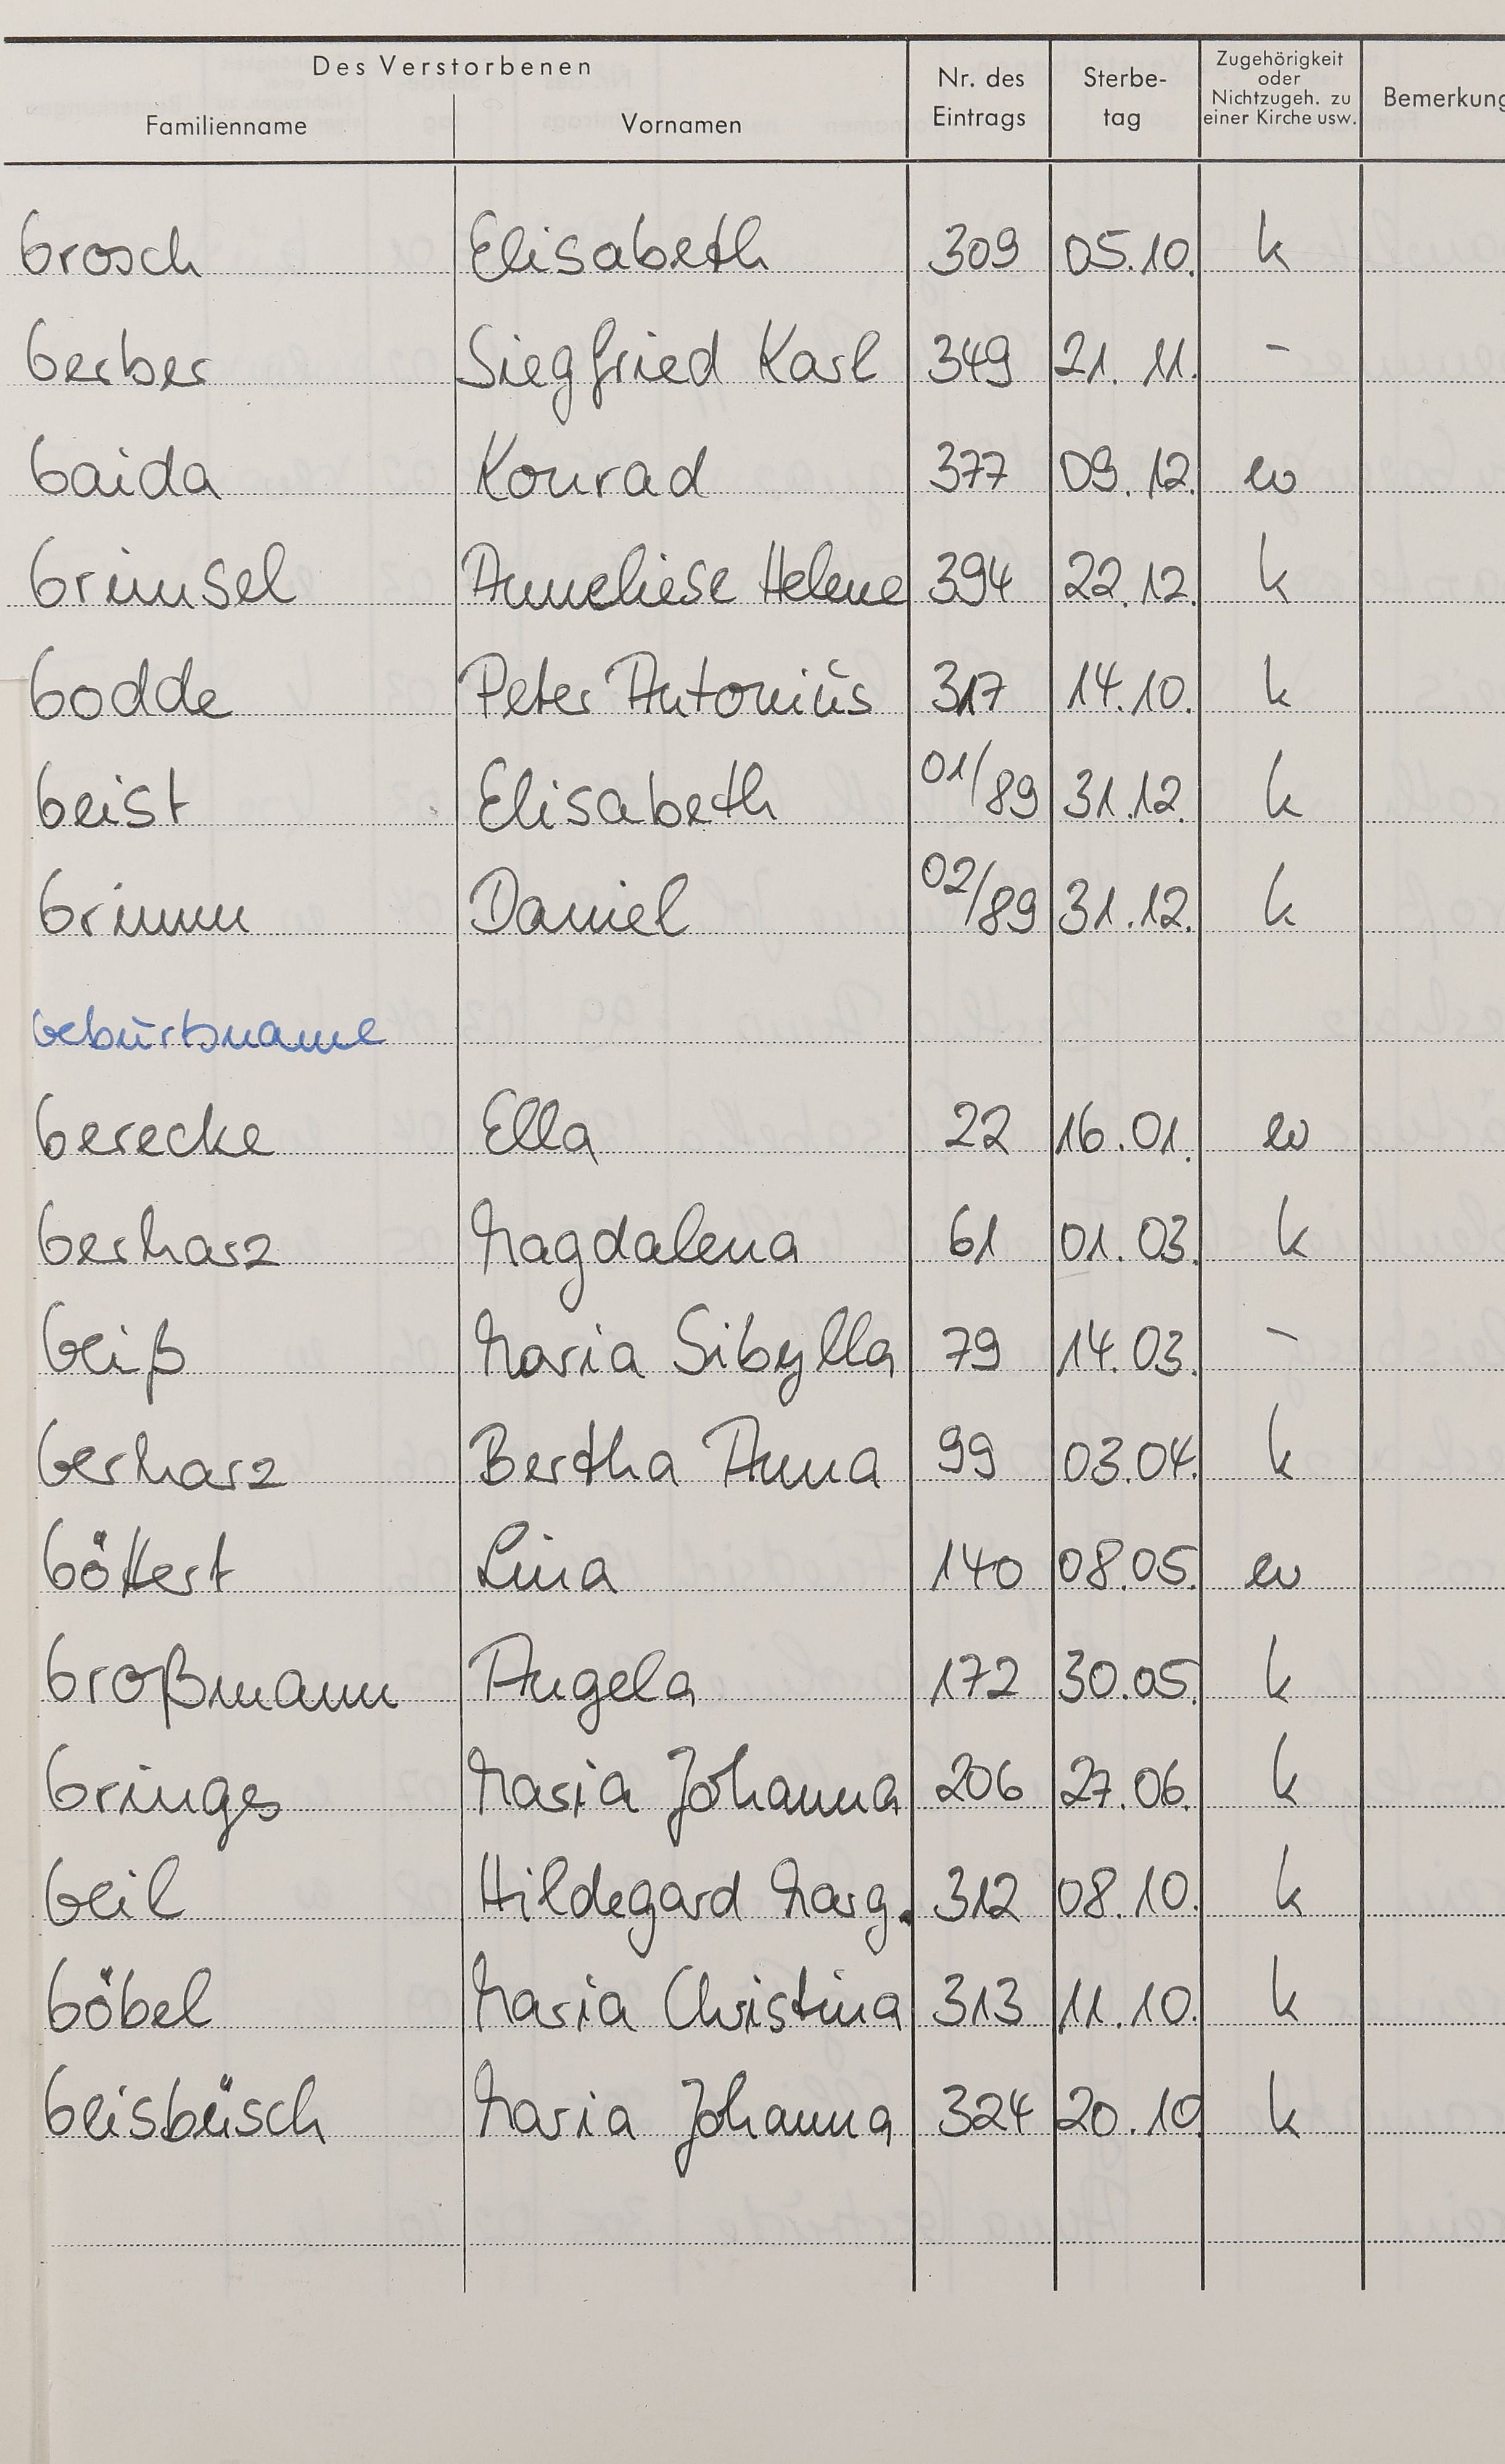 Des Verstorbenen
Familienname Vornamen Nr. des Eintrags Sterbe-tag Zugehörigkeit oder Nichtzugeh. zu einer Kirche usw. Bemerkung
Grosch Elisabeth 309 05.10. k
Gerber Siegfried Karl 349 21.11. -
Gaida Konrad 377 09.12. ev
Grimsel Anneliese Helene 394 22.12. k
Godde Peter Antonius 317 14.10. k
Geist Elisabeth 01/89 31.12. k
Grimm Daniel 02/89 31.12. k
Geburtsname
Gerecke Ella 22 16.01. ev
Gerharz Magdalena 61 01.03. k
Geiß Maria Sibylla 79 14.03. -
Gerharz Bertha Anna 99 03.04. k
Göttert Lina 140 08.05. ev
Großmann Angela 172 30.05. k
Gringes Maria Johanna 206 27.06. k
Geil Hildegard Marg. 312 08.10. k
Göbel Maria Christina 313 11.10. k
Geisbüsch Maria Johanna 324 20.10 k